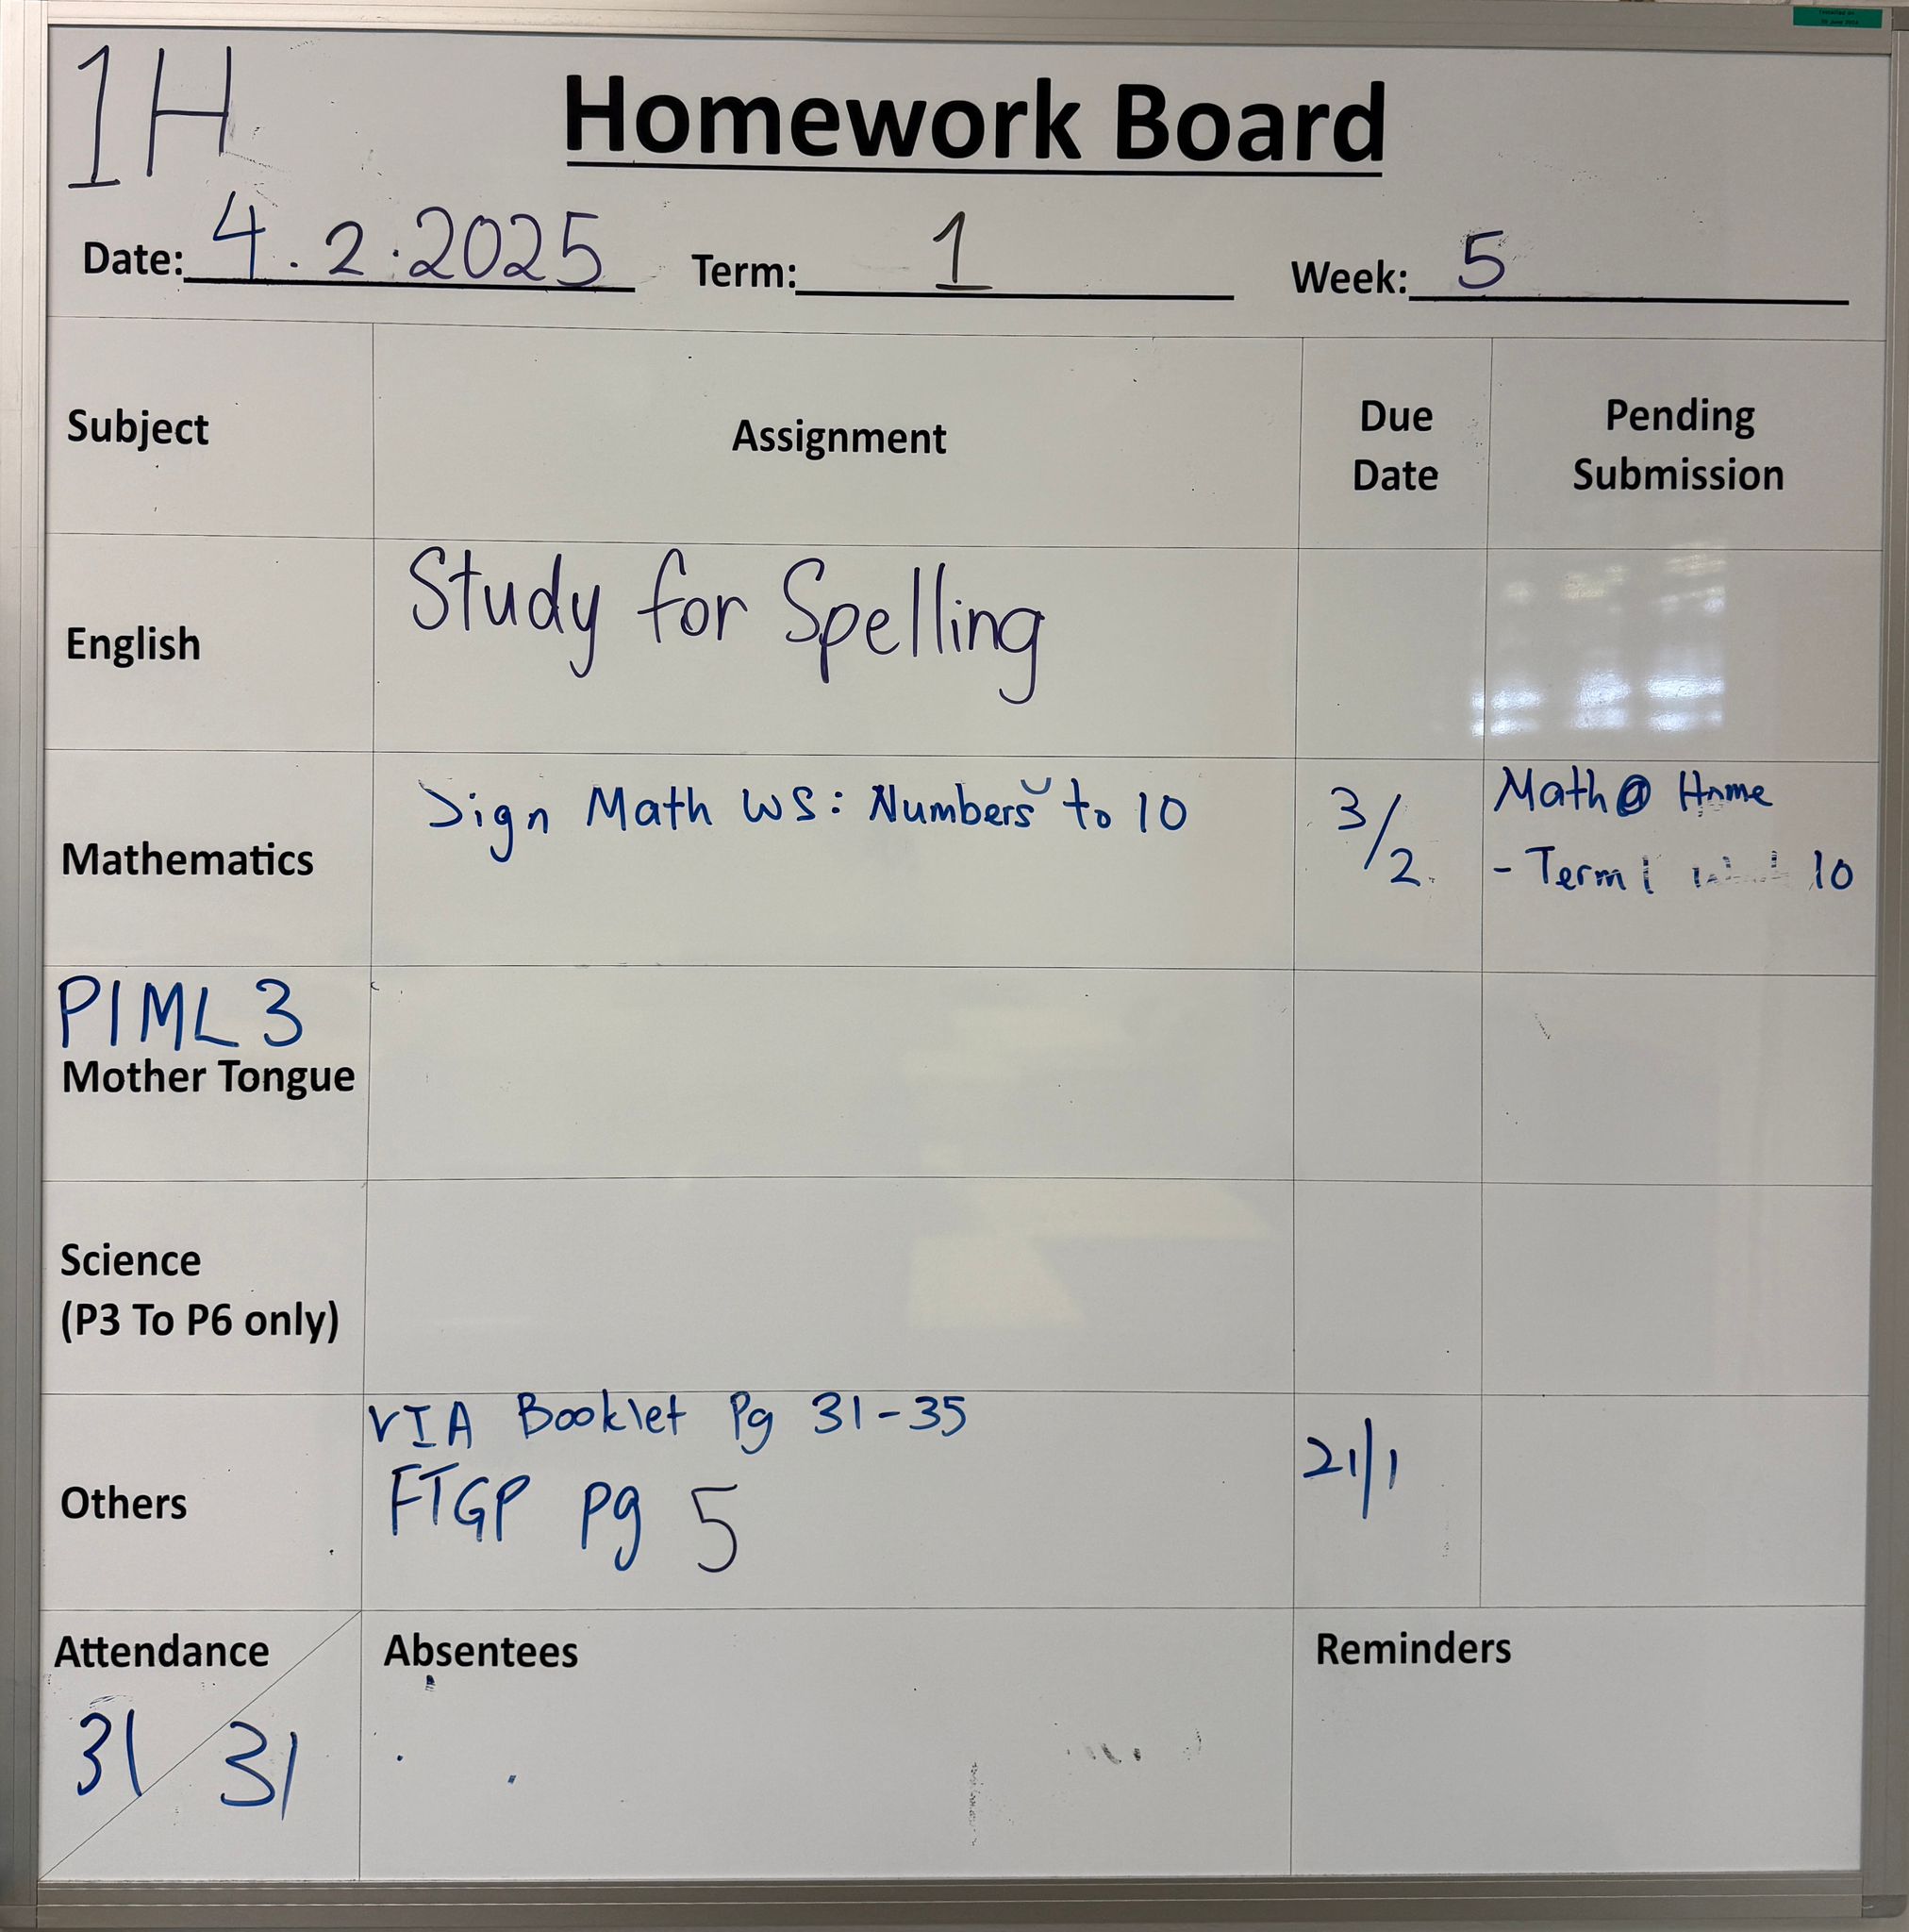 1H
Homework Board
Date: 4.2.2025 Term: 1 Week: 5
Subject
Assignment
Due
Date
Pending
Submission
English
Study for Spelling
Mathematics
Sign Math WS: Numbers to 10
3/2
Math@ Home
- Term 1 10
PIML 3
Mother Tongue
Science
(P3 To P6 only)
Others
VIA Booklet Pg 31-35
FTGP pg 5
21/1
Attendance
31 / 31
Absentees
Reminders